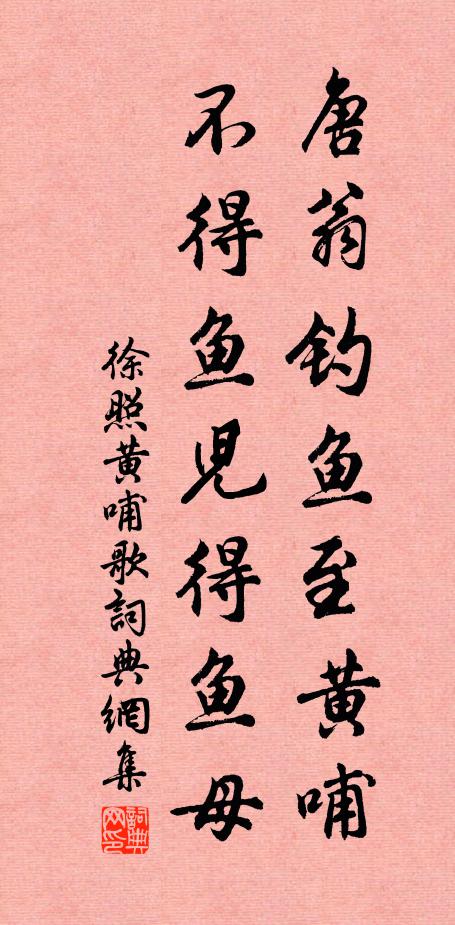 唐翁钓鱼至黄哺
不得鱼児得鱼母
徐照黄哺歌詞典網集
詞典网印